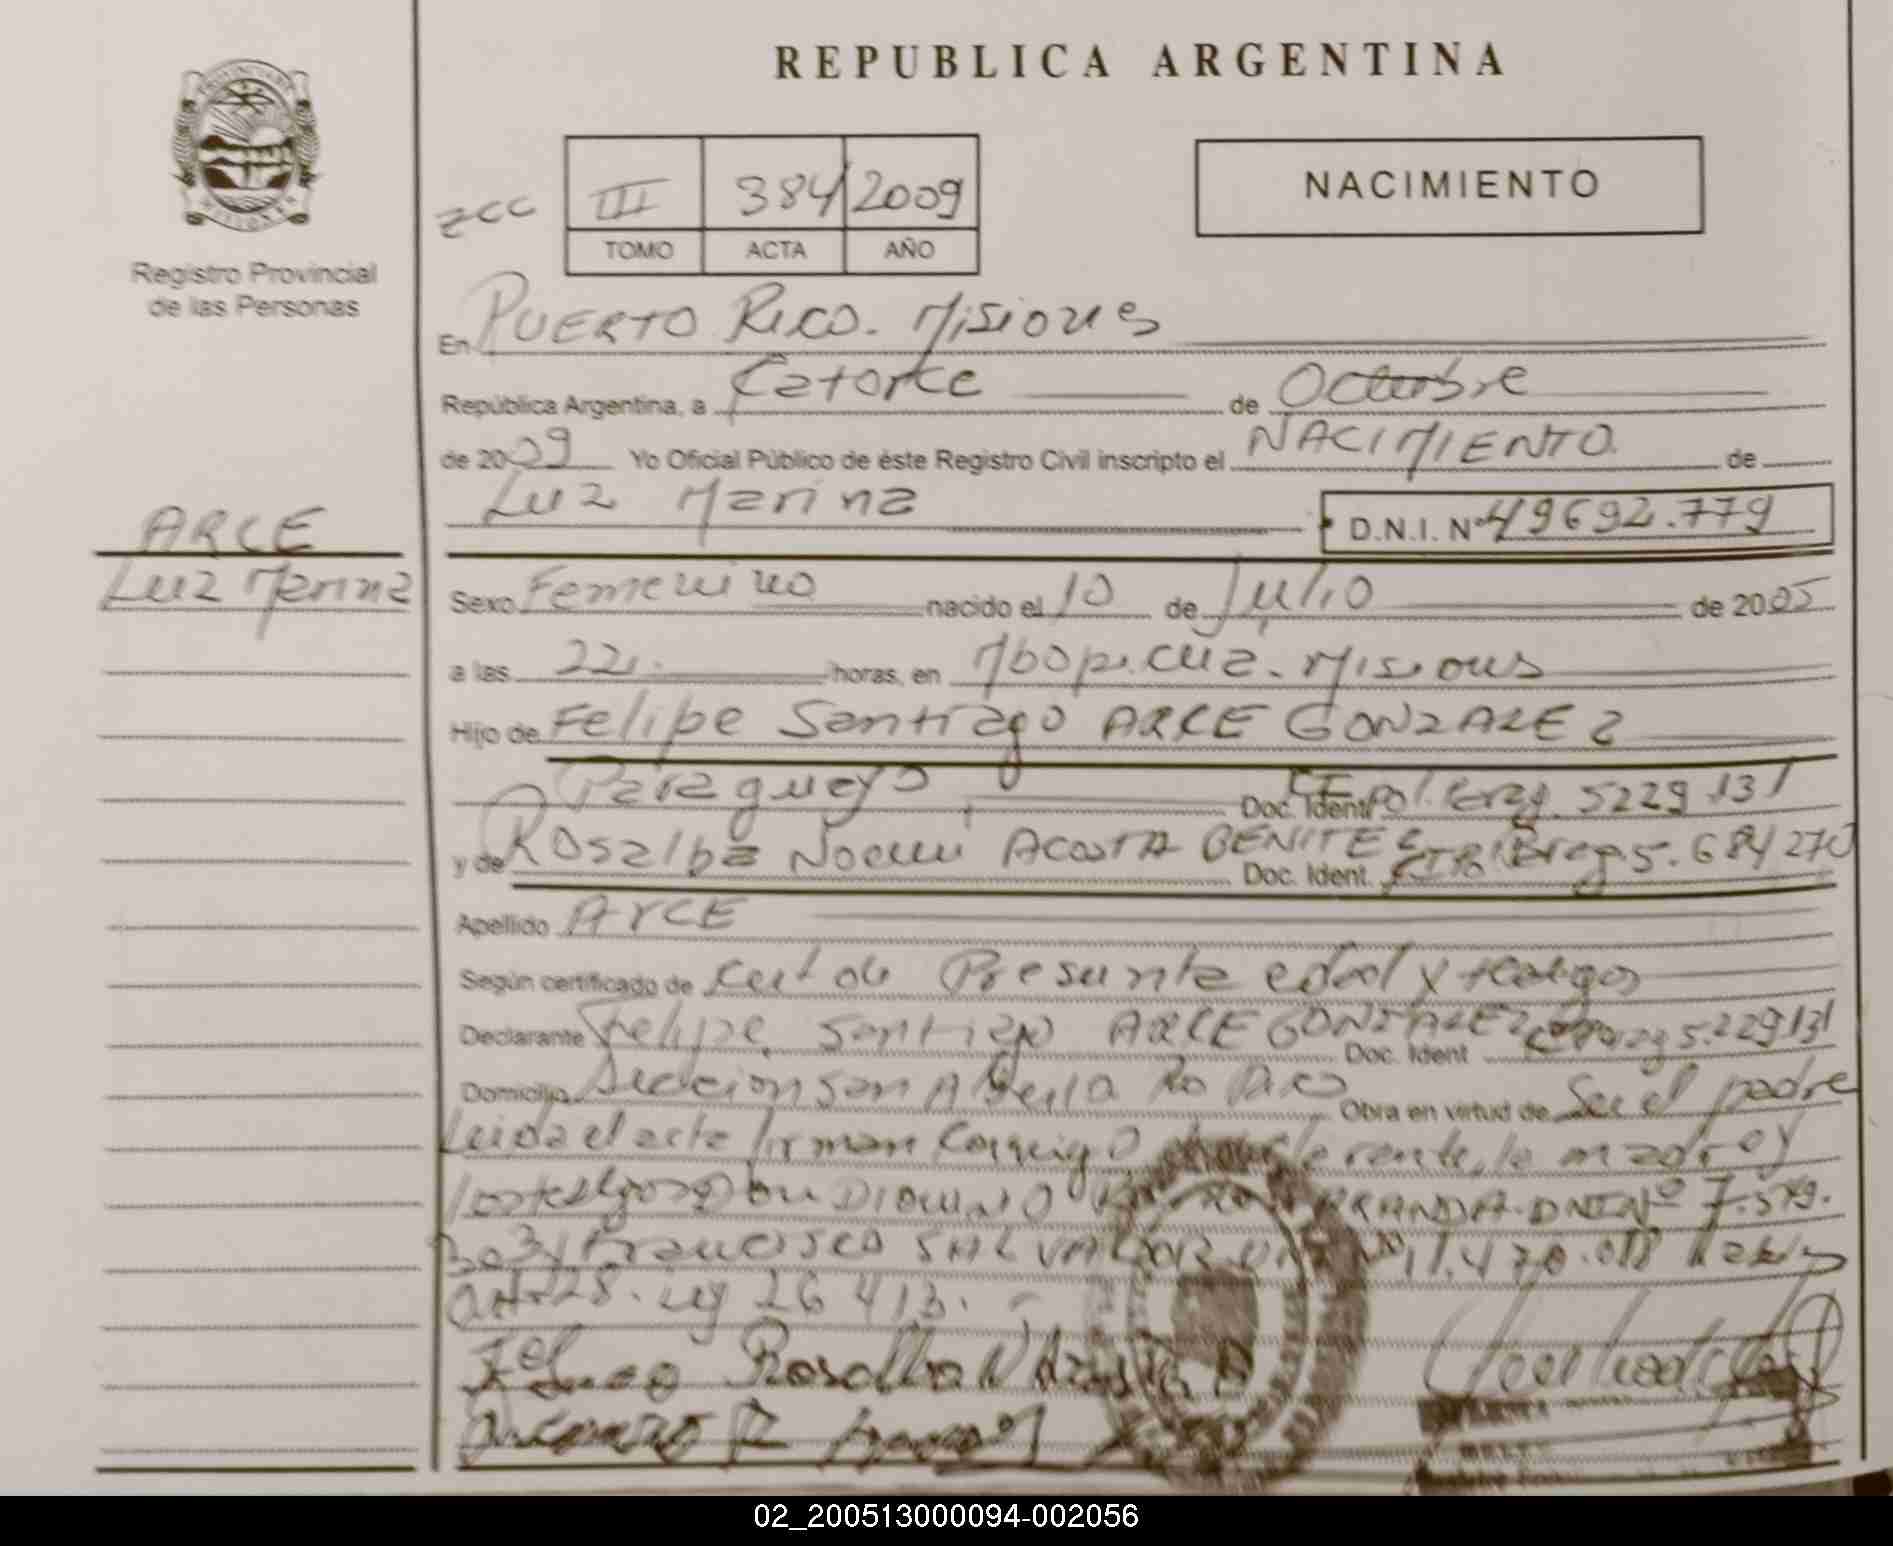 REPUBLICA ARGENTINA
Registro Provincial
de las Personas
zcc
III 384 2009
TOMO ACTA AÑO
NACIMIENTO
En PUERTO RICO. Misiones
República Argentina, a Catorce de Octubre
de 2009 Yo Oficial Público de éste Registro Civil inscripto el NACIMIENTO de
Luz Marina D.N.I. Nº 49692.779
ARCE
Luz Marina
Sexo Femenino nacido el 10 de Julio de 2005
a las 22. horas, en Mbopicuá. Misiones
Hijo de Felipe Santiago ARCE GONZALEZ
Paraguayo Doc. Ident. 5229.131
y de Rosalba Noemi ACOSTA BENITEZ Doc. Ident. 5.684270
Apellido ARCE
Según certificado de Cert de Presunta edad y testigos
Declarante Felipe Santiago ARCE GONZALEZ Doc. Ident 5.229131
Domicilio San Obra en virtud de Ser el padre
Leida el acta firman conmigo la madre y
DNI Nº 7.519.
Francisco SALVADOR 11.470.018
art 28. Ley 26 413.
02_200513000094-002056